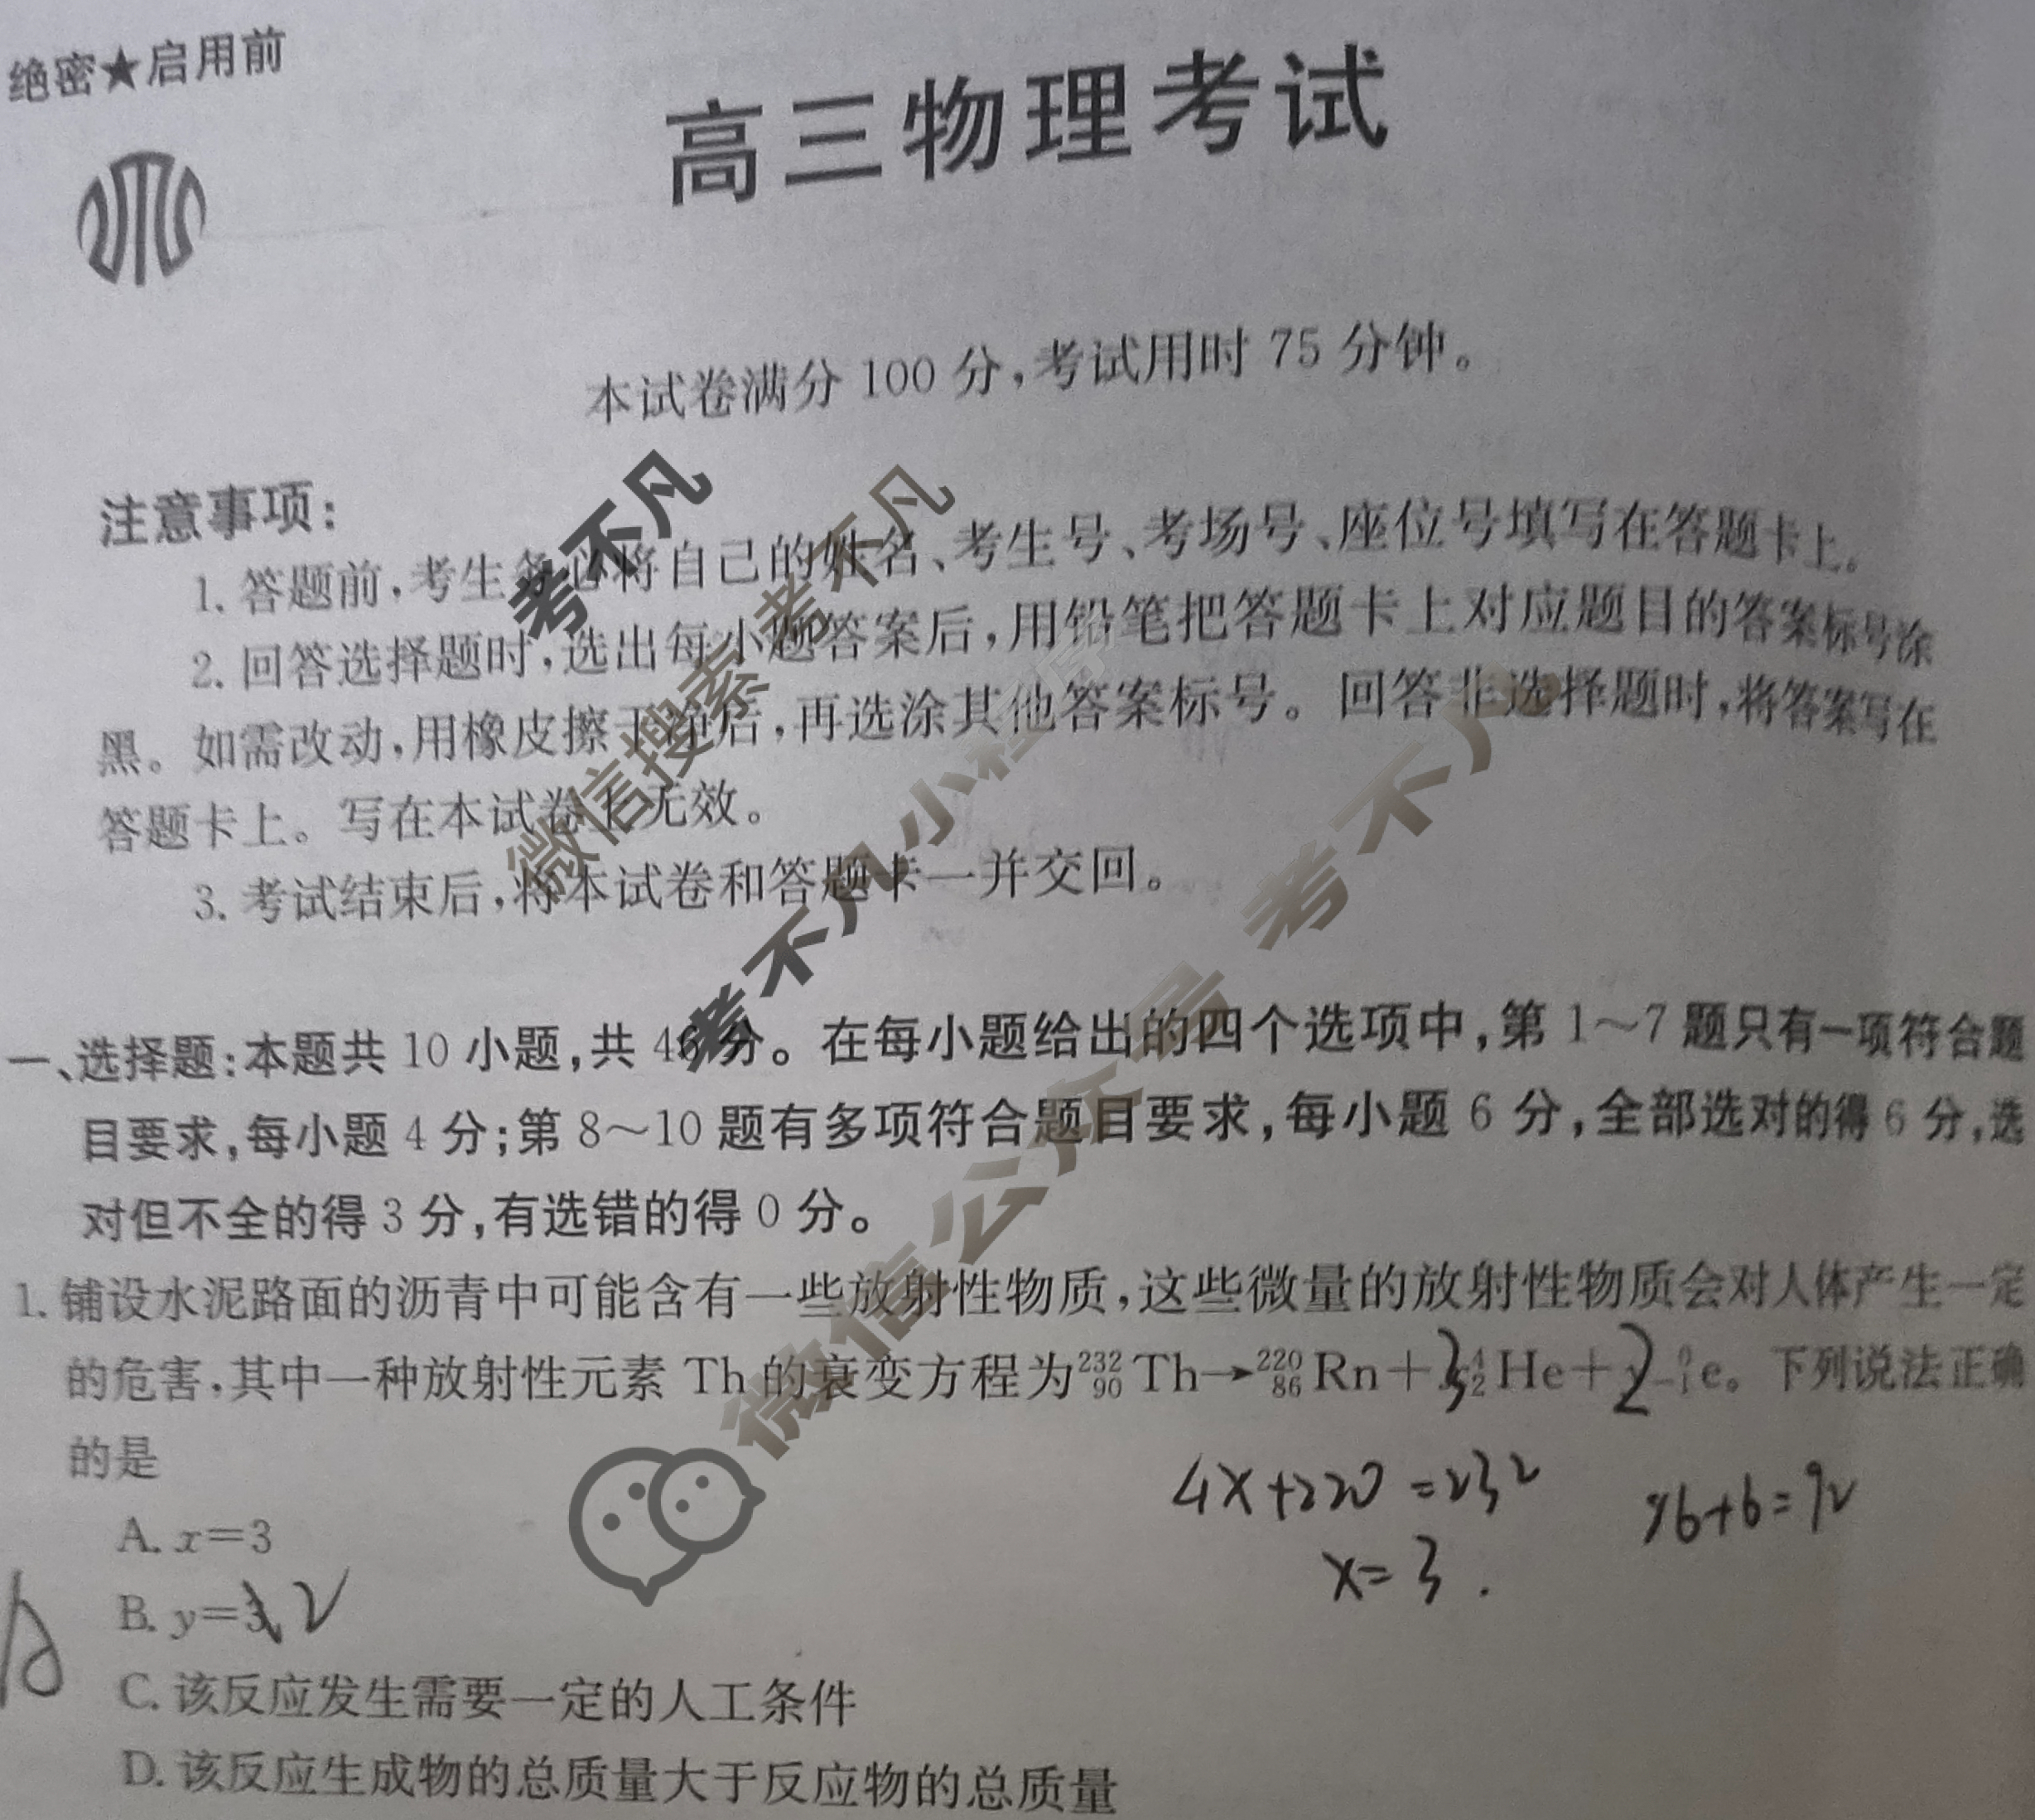 绝密★启用前
高三物理考试
本试卷满分 100 分,考试用时 75 分钟。
注意事项:
1. 答题前,考生务必将自己的姓名、考生号、考场号、座位号填写在答题卡上。
2. 回答选择题时,选出每小题答案后,用铅笔把答题卡上对应题目的答案标号涂
黑。如需改动,用橡皮擦干净后,再选涂其他答案标号。回答非选择题时,将答案写在
答题卡上。写在本试卷上无效。
3. 考试结束后,将本试卷和答题卡一并交回。
考不凡
微信搜索 考不凡
考不凡小程序
微信公众号 考不凡
一、选择题:本题共 10 小题,共 46 分。在每小题给出的四个选项中,第 1~7 题只有一项符合题
目要求,每小题 4 分;第 8~10 题有多项符合题目要求,每小题 6 分,全部选对的得 6 分,选
对但不全的得 3 分,有选错的得 0 分。
1. 铺设水泥路面的沥青中可能含有一些放射性物质,这些微量的放射性物质会对人体产生一定
的危害,其中一种放射性元素 Th 的衰变方程为²³²₉₀Th→²²⁰₈₆Rn+3⁴₂He+2⁰₋₁e。下列说法正确
的是
4x+220=232
86+6=92
x=3.
A. x=3
B. y=3 2
C. 该反应发生需要一定的人工条件
D. 该反应生成物的总质量大于反应物的总质量